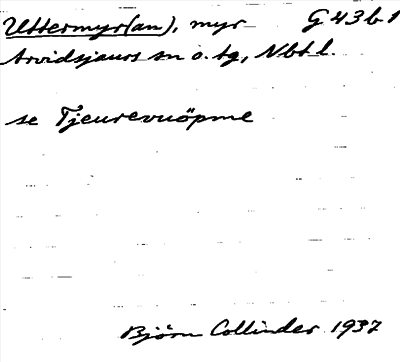 Uttermyr(an), myr G 43 b 1
Arvidsjaurs sn o. tg, Nbtl.
se Tjeurevuöpme
Björn Collinder 1937